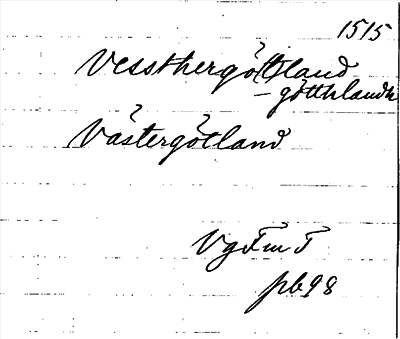 1515
Vessthergöttland
– götthlandh
Västergötland
VgFmT
pb98